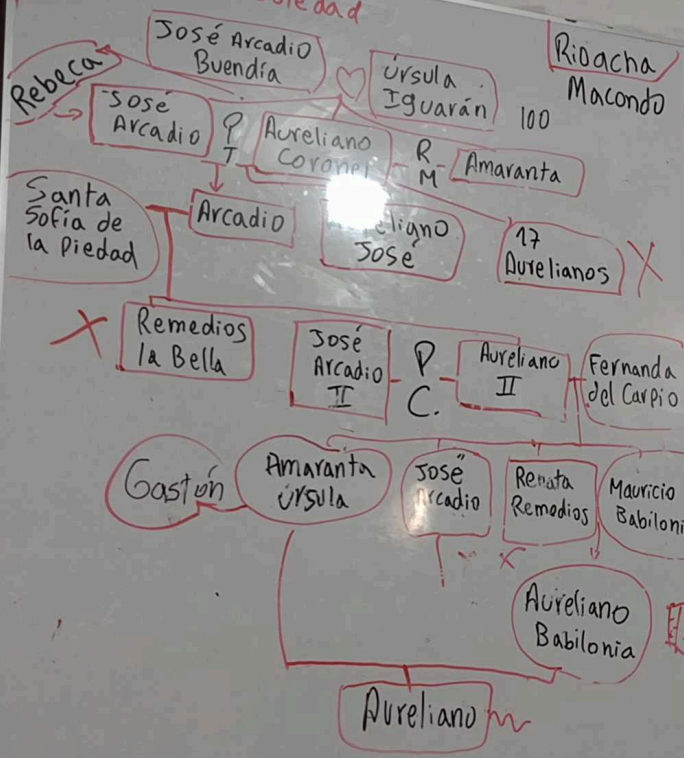 José Arcadio
Buendía
Úrsula
Iguarán
100
Rioacha
Macondo
Rebeca
José
Arcadio
P
T
Aureliano
Coronel
R
M
Amaranta
Santa
Sofía de
la Piedad
Arcadio
José
17
Aurelianos
Remedios
la Bella
José
Arcadio
II
P
C.
Aureliano
II
Fernanda
del Carpio
Gastón
Amaranta
Úrsula
José
Arcadio
Renata
Remedios
Mauricio
Babiloni
Aureliano
Babilonia
Aureliano